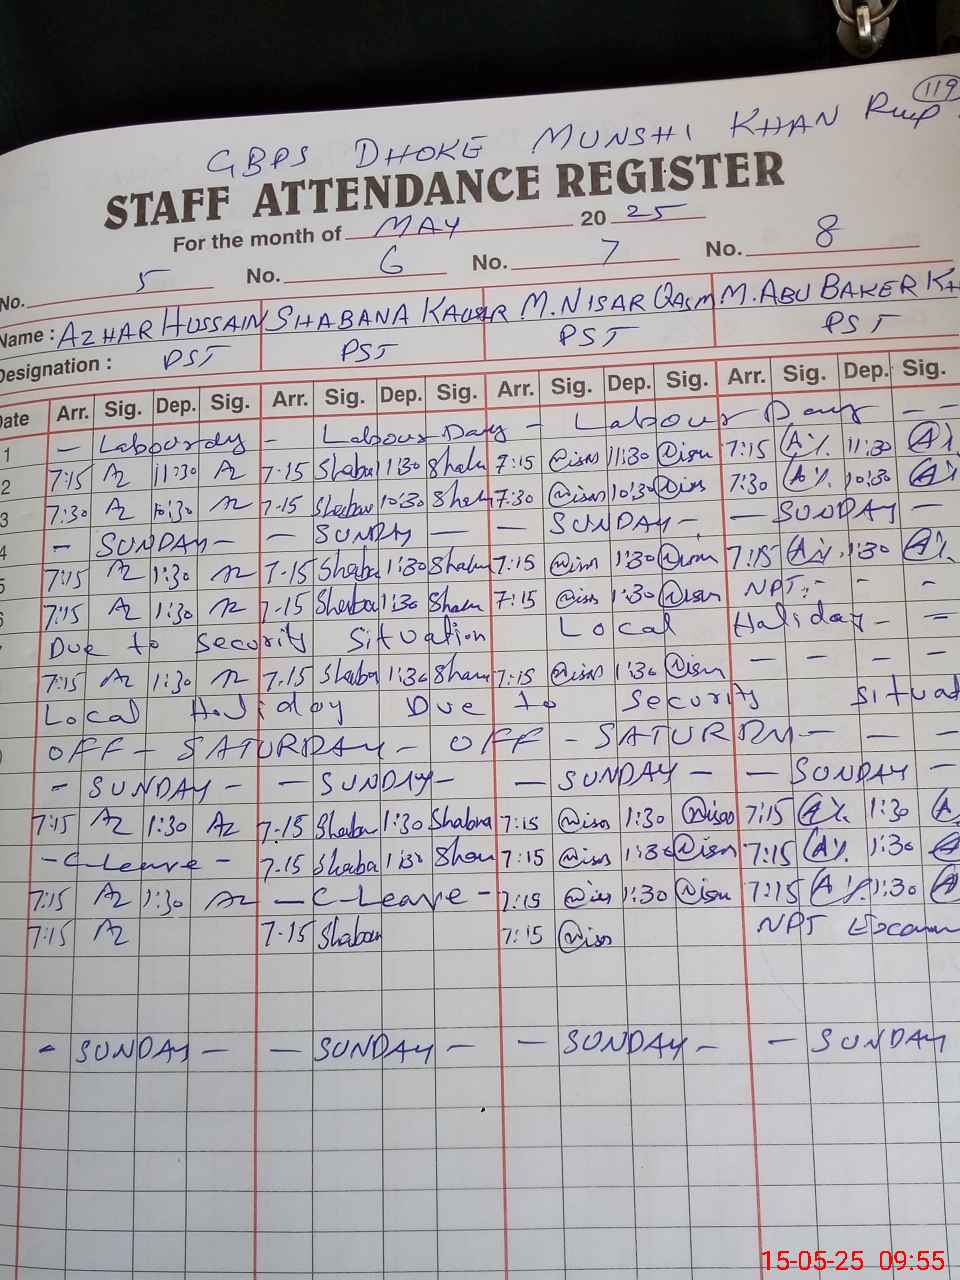 119
GBPS DHOKE MUNSHI KHAN Rwp.
STAFF ATTENDANCE REGISTER
For the month of MAY 20 25
No. 5 No. 6 No. 7 No. 8
Name : AZHAR HUSSAIN SHABANA KAUSAR M. NISAR QASM M. ABU BAKER KH
Designation : PST PST PST PST
Date Arr. Sig. Dep. Sig. Arr. Sig. Dep. Sig. Arr. Sig. Dep. Sig. Arr. Sig. Dep. Sig.
1 - Labourdy - Labour Day - Labour Day - -
2 7:15 Az 11:30 Az 7-15 Shaba 11:30 Shaba 7:15 11:30 7:15 11:30
3 7:30 Az 10:30 Az 7-15 Shaba 10:30 Shaba 7:30 10:30 7:30 10:30
4 - SUNDAY - - SUNDAY - - SUNDAY - - SUNDAY -
5 7:15 Az 1:30 Az 7-15 Shaba 1:30 Shaba 7:15 1:30 7:15 1:30
6 7:15 Az 1:30 Az 7-15 Shaba 1:30 Shaba 7:15 1:30 NPT:- - -
Due to Security Situation Local Holiday - =
7:15 Az 1:30 Az 7-15 Shaba 1:30 Shana 7:15 1:30 - - - -
Local Holiday Due to Security Situat
OFF - SATURDAY - OFF - SATURDAY - - -
- SUNDAY - - SUNDAY - - SUNDAY - - SUNDAY -
7:15 Az 1:30 Az 7-15 Shaba 1:30 Shabna 7:15 1:30 7:15 1:30
- C-Leave - 7-15 Shaba 1:30 Shan 7:15 1:30 7:15 1:30
7:15 Az 1:30 Az - C-Leave - 7:15 1:30 7:15 1:30
7:15 Az 7-15 Shaban 7:15 NPT
- SUNDAY - - SUNDAY - - SUNDAY - - SUNDAY
15-05-25 09:55